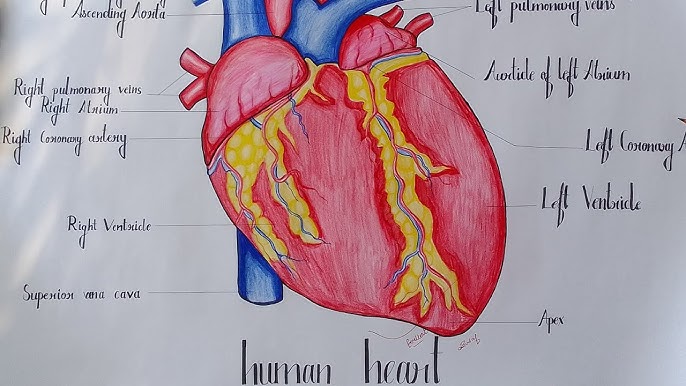 Ascending Aorta
Left pulmonary veins
Right pulmonary veins
Right Atrium
Right Coronary artery
Right Ventricle
Superior vana cava
Auodicle of left Atrium
Left Coronary
Left Ventricle
Apex
human heart